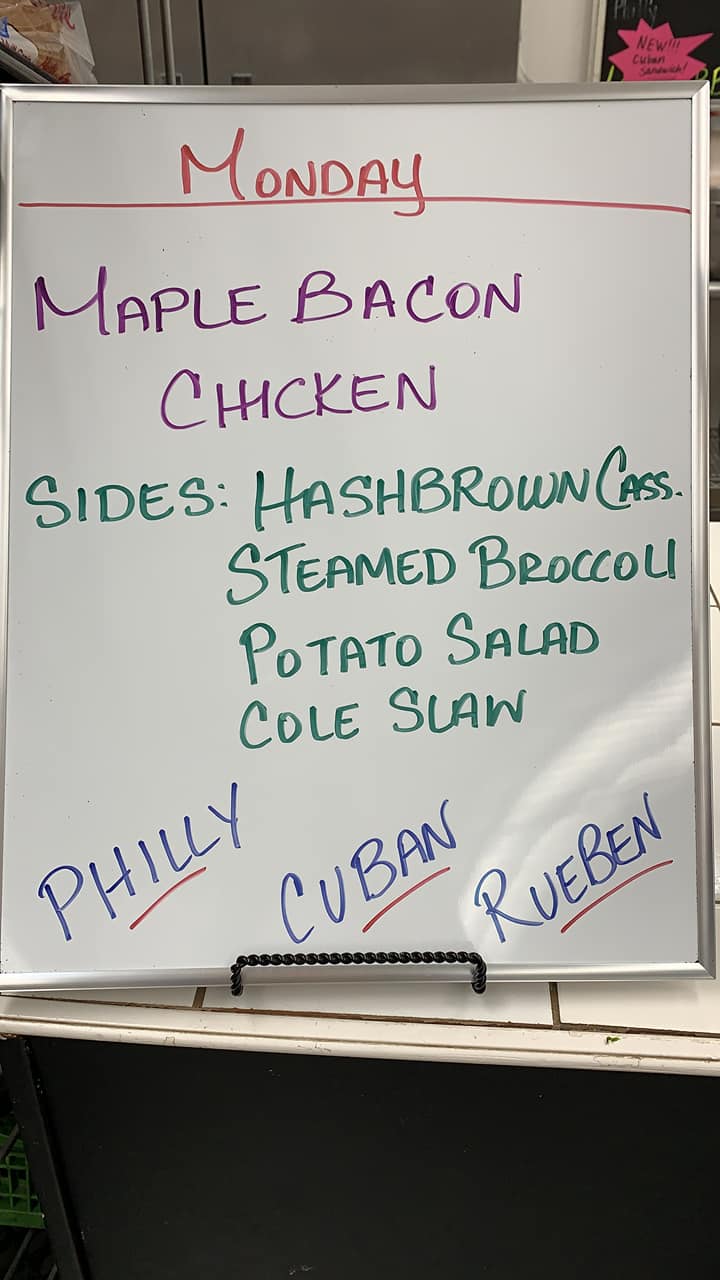 Philly
NEW!!!
Cuban
Sandwich!
MONDAY
MAPLE BACON
CHICKEN
SIDES: HASHBROWN CASS.
STEAMED BROCCOLI
POTATO SALAD
COLE SLAW
PHILLY CUBAN RUEBEN